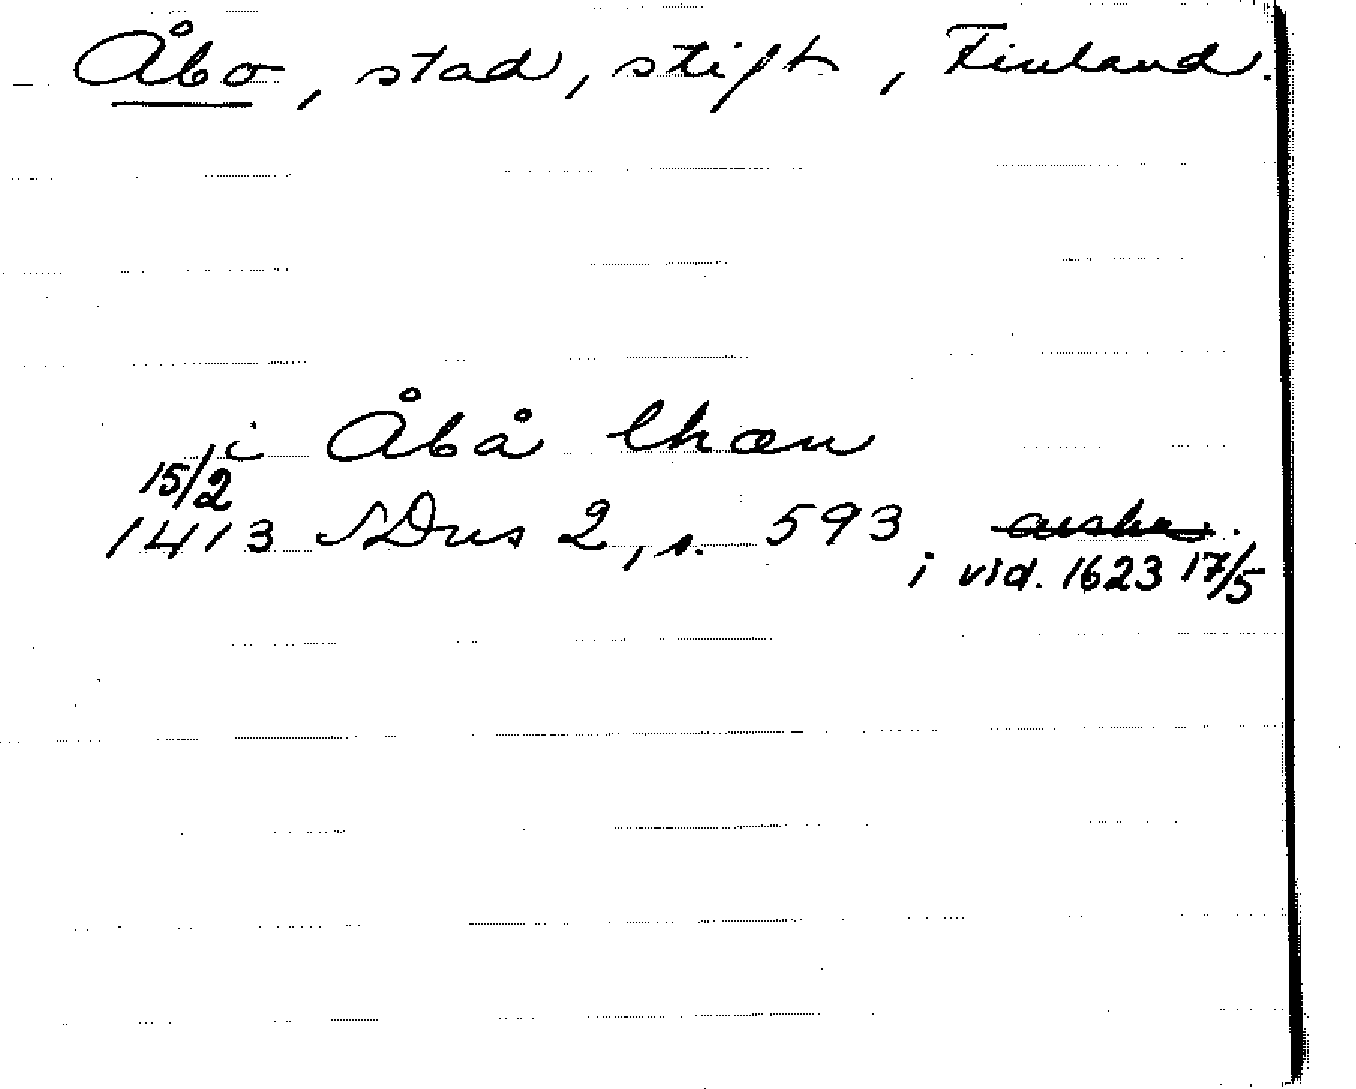 Åbo, stad, stift, Finland.
i Åbå lhæn
15/2
1413 SDns 2, s. 593
i vid. 1623 17/5